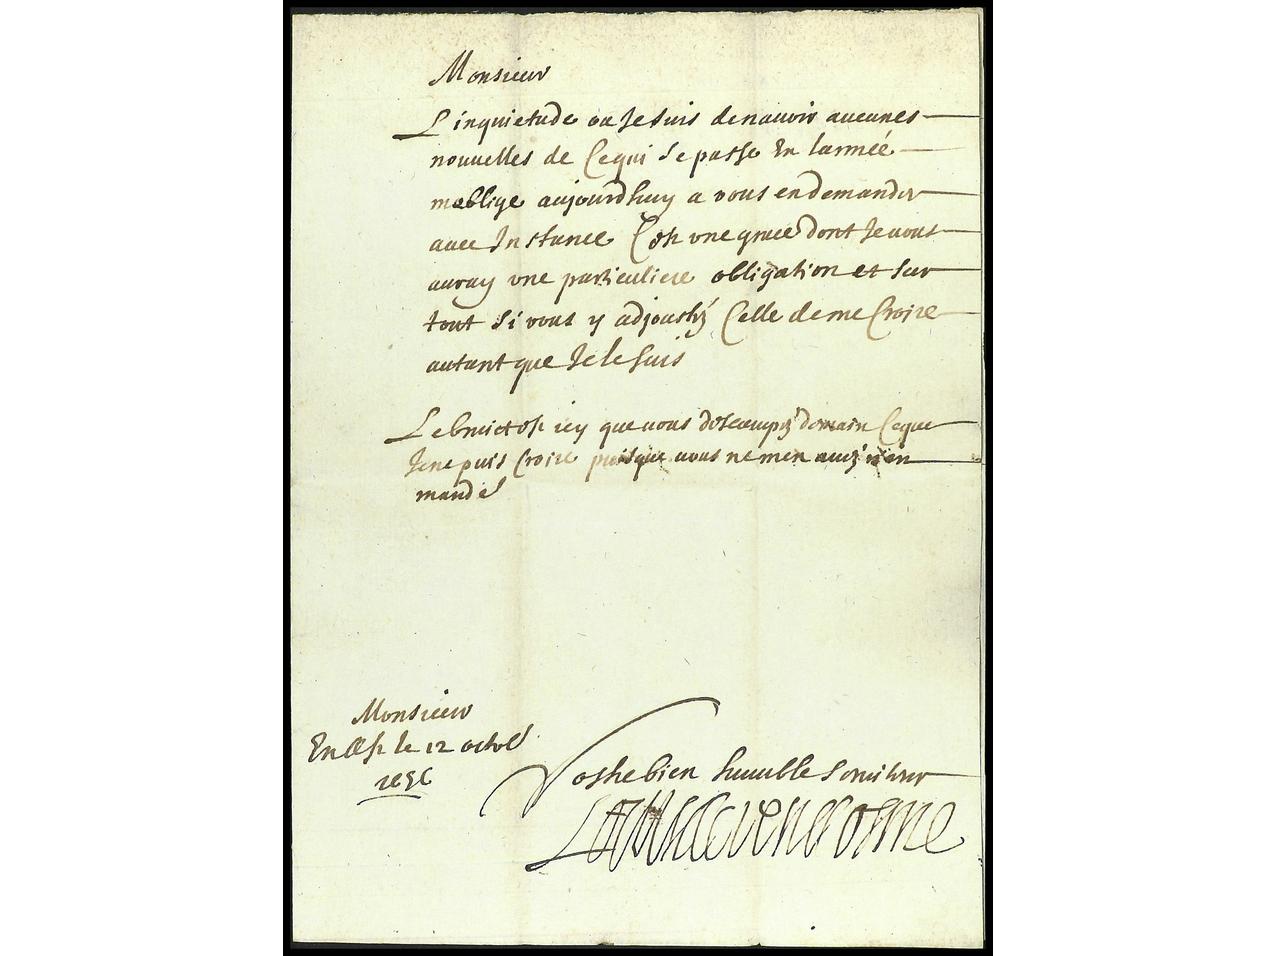 Monsieur
L inquietude ou Je suis de nauoir aucunes
nouuelles de Cequi se passe En larmeé
moblige aujourdhuy a vous en demander
auec Instance Cest vne grace dont Je vous
auray vne particuliere obligation et sur
tout si vous y adjousté Celle de me Croire
autant que Je le suis
Le bruict est icy que vous descampé demain Ceque
Je ne puis Croire puisque vous ne men aués rien
mandé
Monsieur
le 12 octob
Vostre bien humble seruiteur
Louis de vendosme